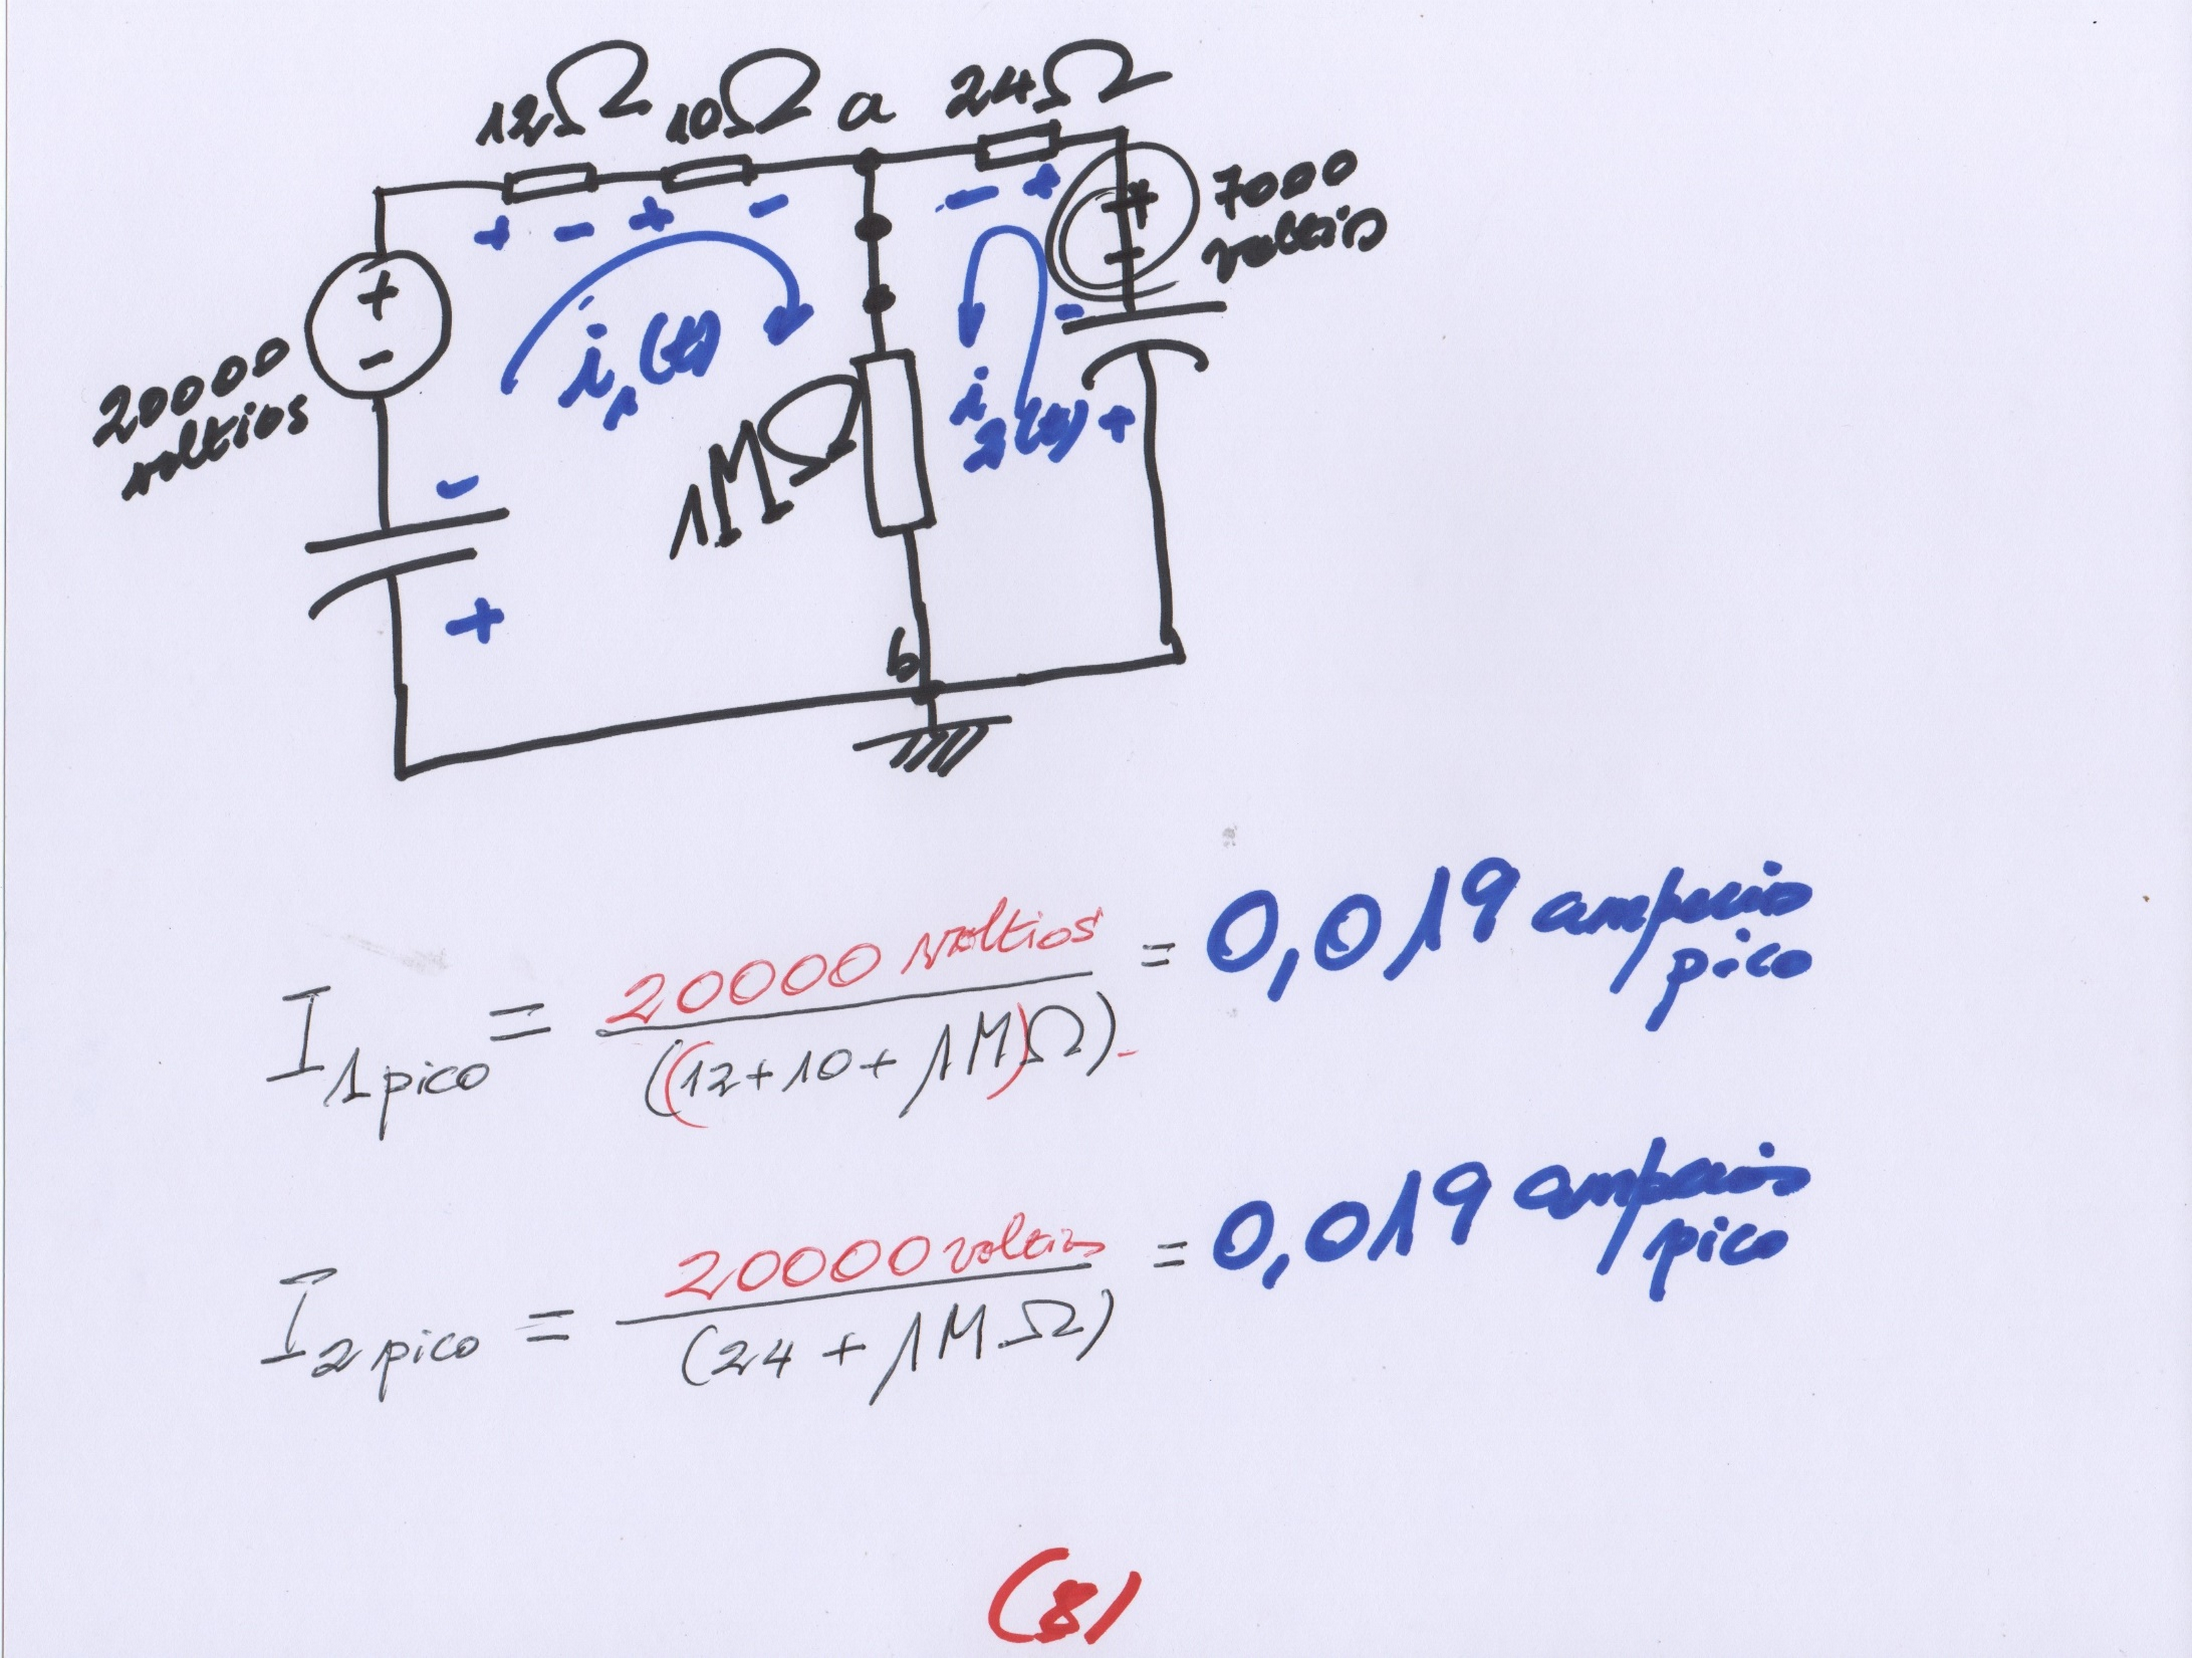 12Ω 10Ω a 24Ω
+ - + - - +
+
-
7000
voltios
+
-
20000
voltios
i1(t)
i
2(t)
-
+
1MΩ
-
+
b
I1pico = 20000 voltios / ((12+10+1M)Ω) = 0,019 amperios
pico
I2pico = 20000 voltios / (24+1MΩ) = 0,019 amperios
pico
(8)